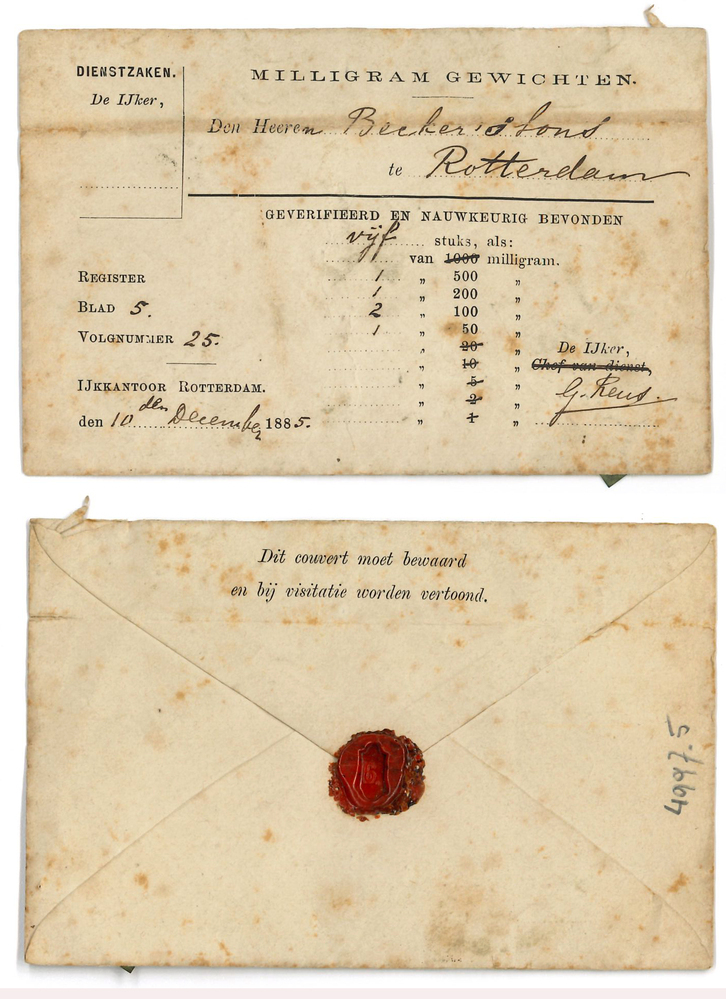 DIENSTZAKEN.
De IJker,
MILLIGRAM GEWICHTEN.
Den Heeren Becker's Sons
te Rotterdam
GEVERIFIEERD EN NAUWKEURIG BEVONDEN
vijf stuks, als:
van 1000 milligram.
1 „ 500 „
1 „ 200 „
2 „ 100 „
1 „ 50 „
„ 20 „
„ 10 „
„ 5 „
„ 2 „
„ 1 „
REGISTER
BLAD 5.
VOLGNUMMER 25.
IJKKANTOOR ROTTERDAM.
den 10 den December 1885.
De IJker,
Chef van dienst,
Dit couvert moet bewaard
en bij visitatie worden vertoond.
4997.5